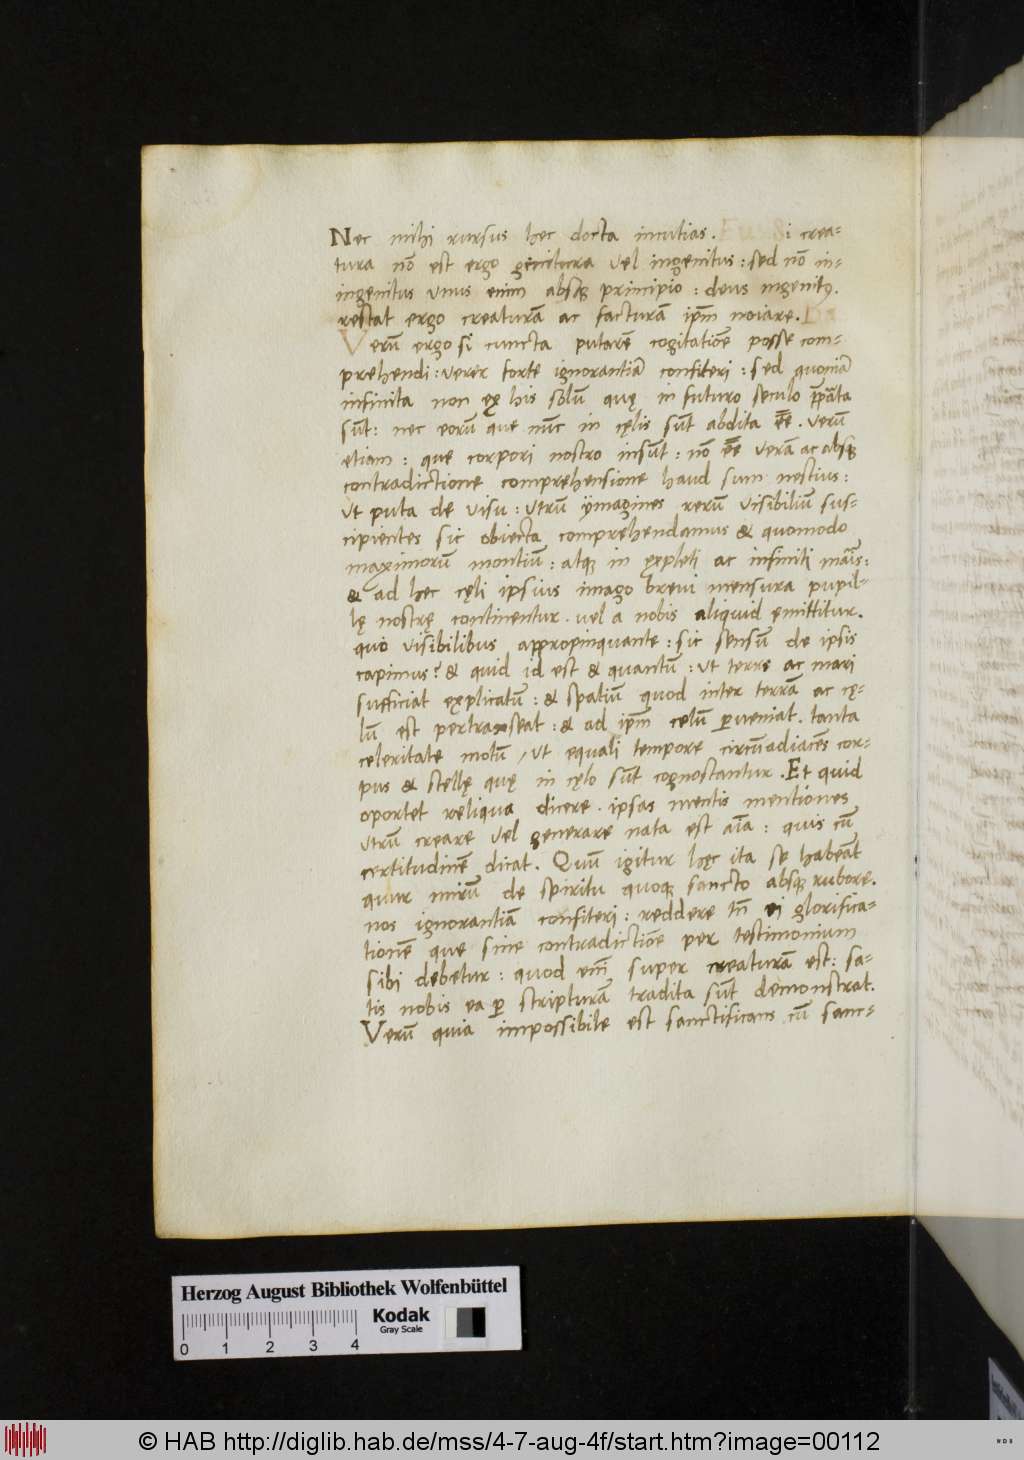 Nec mihi rursus hec docta incutias. Eu. Si crea-
tura nō est ergo genitura vel ingenitus: sed nō in-
ingenitus vnus enim absq; principio: deus ingenitꝰ.
restat ergo creaturā ac facturā ip̄m noīare. Ba
Verū ergo si cuncta putarē cogitatiōe posse com-
prehendi: verer forte ignorantiā confiteri: sed quoniā
infinita non ex his solū quę in futuro seculo p̄parata
sūt: nec eorū que nūc in cęlis sūt abdita ēē. verū
etiam: que corpori nostro insūt: nō ēē verā ac absq;
contradictione comprehensione haud sum nestius:
vt puta de visu: vtrū ymagines rerū visibiliū sus-
cipientes sic obiecta comprehendamus & quomodo
maximorū montiū: atq; in expleti ac infiniti maīs:
& ad hec cęli ipsius imago breui mensura pupil-
lę nostrę continentur. vel a nobis aliquid emittitur.
quo visibilibus appropinquante: sic sensū de ipsis
capimus? & quid id est & quantū: vt terre ac mari
sufficiat explicatū: & spatiū quod inter terrā ac cę-
lū est pertranseat: & ad ip̄m celū ꝑueniat. tanta
celeritate motū / vt equali tempore circūadiacēs cor-
pus & stellę quę in cęlo sūt cognoscantur. Et quid
oportet reliqua dicere. ipsas mentis mentiones
vtrū creare vel generare nata est aīa: quis cū
certitudinē dicat. Quū igitur hęc ita se habeāt
quur mirū de spiritu quoq; sancto absq; rubore.
nos ignorantiā confiteri: reddere tn̄ ei glorifica-
tionē que sine contradictiōe per testimonium
sibi debetur: quod em̄ super creaturā est: sa-
tis nobis ea ꝑ scripturā tradita sūt demonstrat.
Verū quia impossibile est sanctificans cū sanc-
Herzog August Bibliothek Wolfenbüttel
Kodak
Gray Scale
0 1 2 3 4
© HAB http://diglib.hab.de/mss/4-7-aug-4f/start.htm?image=00112